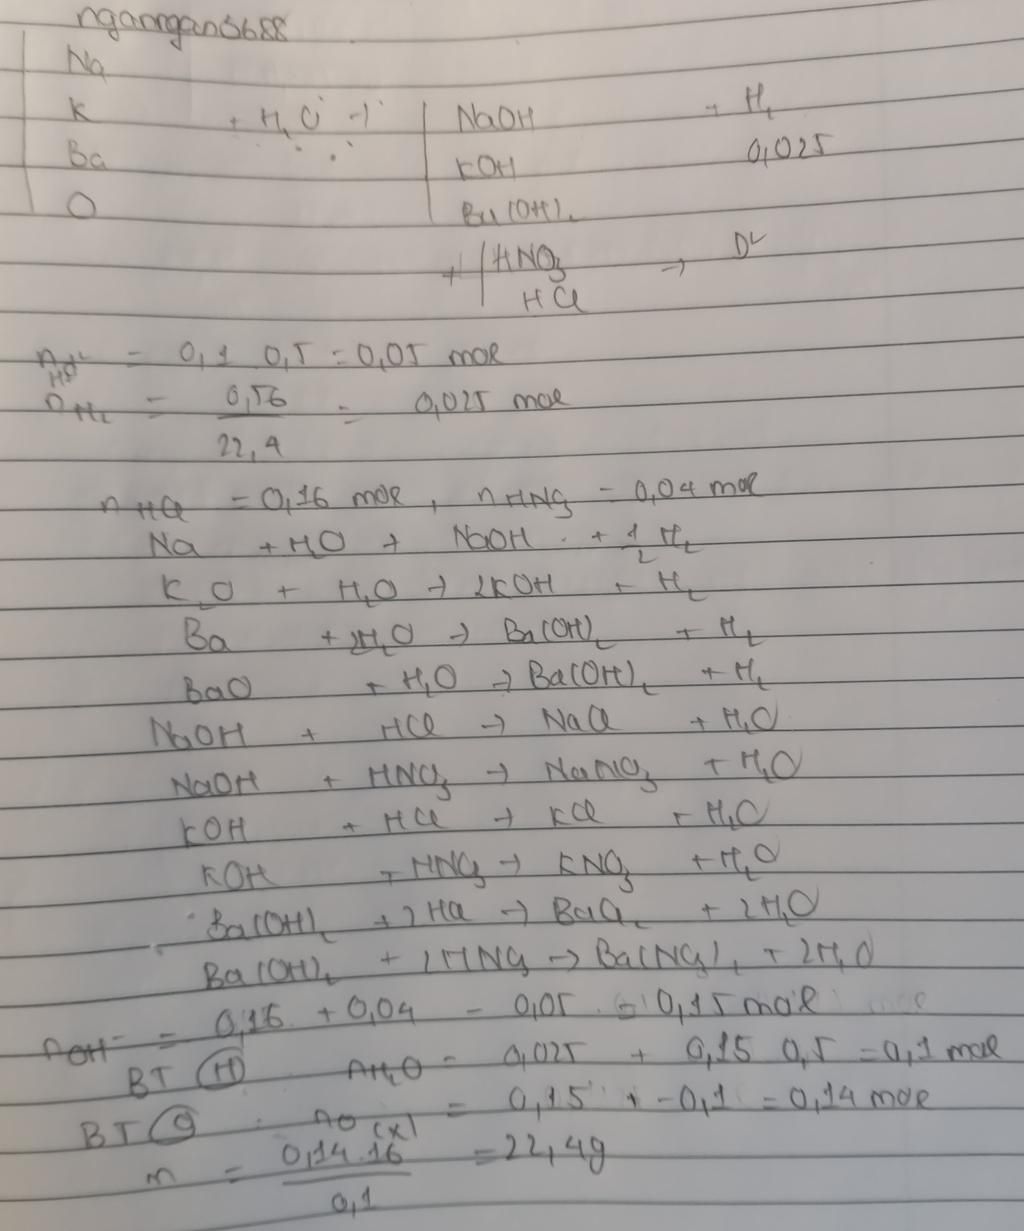 nganngan5688
Na
K + H₂O → NaOH + H₂
Ba KOH 0,025
O Ba(OH)₂
+ HNO₃ → D²
HCl
= 0,1 0,5 = 0,05 mol
nH₂ = 0,56 / 22,4 = 0,025 mol
nHCl = 0,16 mol, nHNO₃ = 0,04 mol
Na + HO → NaOH + 1/2 H₂
K₂O + H₂O → 2KOH + H₂
Ba + 2H₂O → Ba(OH)₂ + H₂
BaO + H₂O → Ba(OH)₂ + H₂
NaOH + HCl → NaCl + H₂O
NaOH + HNO₃ → NaNO₃ + H₂O
KOH + HCl → KCl + H₂O
KOH + HNO₃ → KNO₃ + H₂O
Ba(OH)₂ + 2HCl → BaCl₂ + 2H₂O
Ba(OH)₂ + 2HNO₃ → Ba(NO₃)₂ + 2H₂O
nOH⁻ = 0,16 + 0,04 - 0,05 = 0,15 mol
BT (H) nH₂O = 0,025 + 0,15 0,5 = 0,1 mol
BT (O) nO(X) = 0,15 + -0,1 = 0,14 mol
m = 0,14.16 / 0,1 = 22,4g